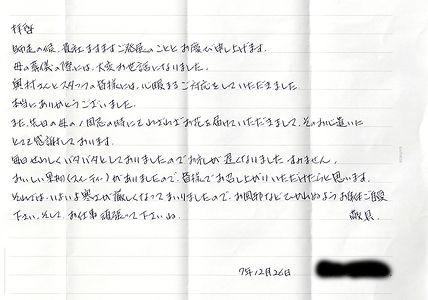 拝啓
師走の候、貴社ますますご発展のこととお慶び申し上げます。
母の葬儀の際には、大変お世話になりました。
奥村さんとスタッフの皆様には、心暖まるご対応をしていただきました
本当にありがとうございました。
また、先日の母の1周忌の時にもわざわざお花を届けていただきまして、そのお心遣いに
とても感謝しております。
毎日せわしくバタバタとしておりましたのでお礼が遅くなりました すみません。
おいしい果物 がありましたので、皆様でお召し上がりいただけたらと思います。
それでは、いよいよ寒さが厳しくなってまいりましたので、お風邪などひかれぬようお体ご自愛
下さい。そして、お仕事頑張って下さいね。 敬具
7年12月26日